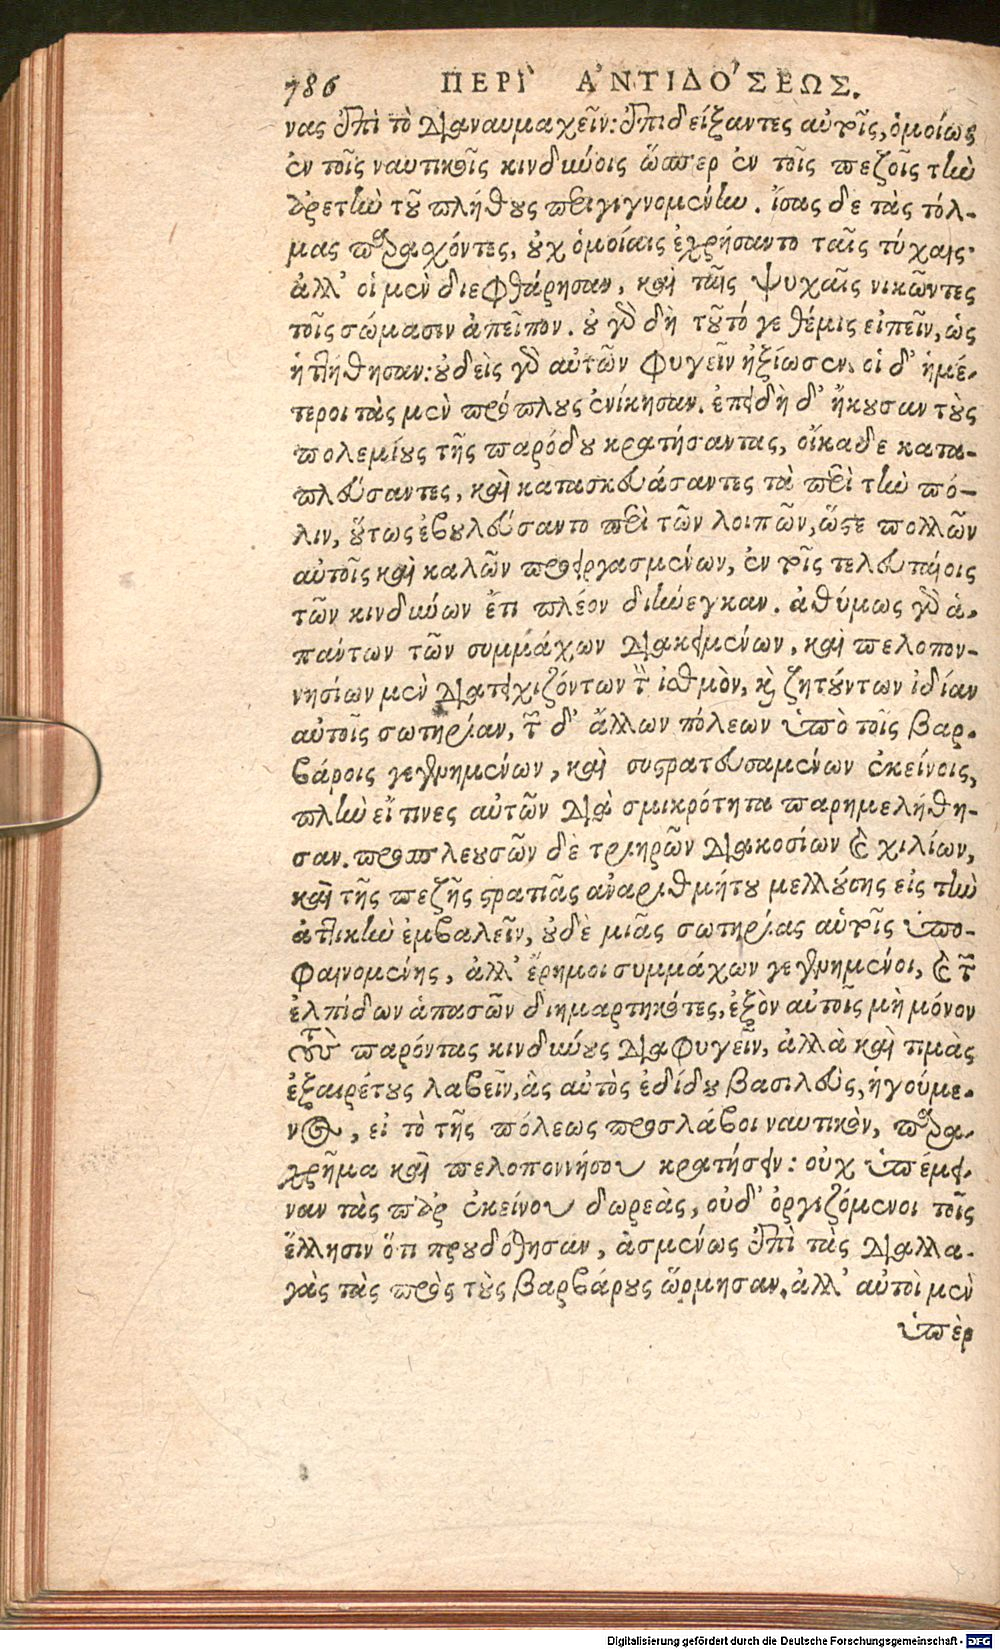 786 ΠΕΡῚ ἈΝΤΙΔΌΣΕΩΣ.
νας ἐπὶ τὸ διαναυμαχεῖν: ἐπιδείξαντες αὐτοῖς, ὁμοίως
ἐν τοῖς ναυτικοῖς κινδύνοις ὥσπερ ἐν τοῖς πεζοῖς τὴν
ἀρετὴν τοῦ πλήθους περιγιγνομένην. ἴσας δὲ τὰς τόλ-
μας παρασχόντες, οὐχ ὁμοίαις ἐχρήσαντο ταῖς τύχαις·
ἀλλ' οἱ μὲν διεφθάρησαν, καὶ ταῖς ψυχαῖς νικῶντες
τοῖς σώμασιν ἀπεῖπον. οὐ γὰρ δὴ τοῦτό γε θέμις εἰπεῖν, ὡς
ἡττήθησαν: οὐδεὶς γὰρ αὐτῶν φυγεῖν ἠξίωσεν. οἱ δ' ἡμέ-
τεροι τὰς μὲν πρόπλους ἐνίκησαν. ἐπειδὴ δ' ἤκουσαν τοὺς
πολεμίους τῆς παρόδου κρατήσαντας, οἴκαδε κατα-
πλεύσαντες, καὶ κατασκευάσαντες τὰ περὶ τὴν πό-
λιν, οὕτως ἐβουλεύσαντο περὶ τῶν λοιπῶν, ὥστε πολλῶν
αὐτοῖς καὶ καλῶν προειργασμένων, ἐν τοῖς τελευταίοις
τῶν κινδύνων ἔτι πλέον διήνεγκαν. ἀθύμως γὰρ ἁ-
πάντων τῶν συμμάχων διακειμένων, καὶ πελοπον-
νησίων μὲν διατειχιζόντων τὸν ἰσθμὸν, καὶ ζητούντων ἰδίαν
αὐτοῖς σωτηρίαν, τῶν δ' ἄλλων πόλεων ὑπὸ τοῖς βαρ-
βάροις γεγενημένων, καὶ συστρατευσαμένων ἐκείνοις,
πλὴν εἴ τινες αὐτῶν διὰ σμικρότητα παρημελήθη-
σαν. προσπλευσῶν δὲ τριηρῶν διακοσίων καὶ χιλίων,
καὶ τῆς πεζῆς στρατιᾶς ἀναριθμήτου μελλούσης εἰς τὴν
ἀττικὴν ἐμβαλεῖν, οὐδὲ μιᾶς σωτηρίας αὐτοῖς ὑπο-
φαινομένης, ἀλλ' ἔρημοι συμμάχων γεγενημένοι, καὶ τῶν
ἐλπίδων ἁπασῶν διημαρτηκότες, ἐξὸν αὐτοῖς μὴ μόνον
τοὺς παρόντας κινδύνους διαφυγεῖν, ἀλλὰ καὶ τιμὰς
ἐξαιρέτους λαβεῖν, ἃς αὐτὸς ἐδίδου βασιλεὺς, ἡγούμε-
νος, εἰ τὸ τῆς πόλεως προσλάβοι ναυτικὸν, παρα-
χρῆμα καὶ πελοποννήσου κρατήσειν: οὐχ ὑπέμει-
ναν τὰς παρ' ἐκείνου δωρεὰς, οὐδ' ὀργιζόμενοι τοῖς
ἕλλησιν ὅτι προυδόθησαν, ἀσμένως ἐπὶ τὰς διαλλα-
γὰς τὰς πρὸς τοὺς βαρβάρους ὥρμησαν. ἀλλ' αὐτοὶ μὲν
ὑπὲρ
Digitalisierung gefördert durch die Deutsche Forschungsgemeinschaft - DFG